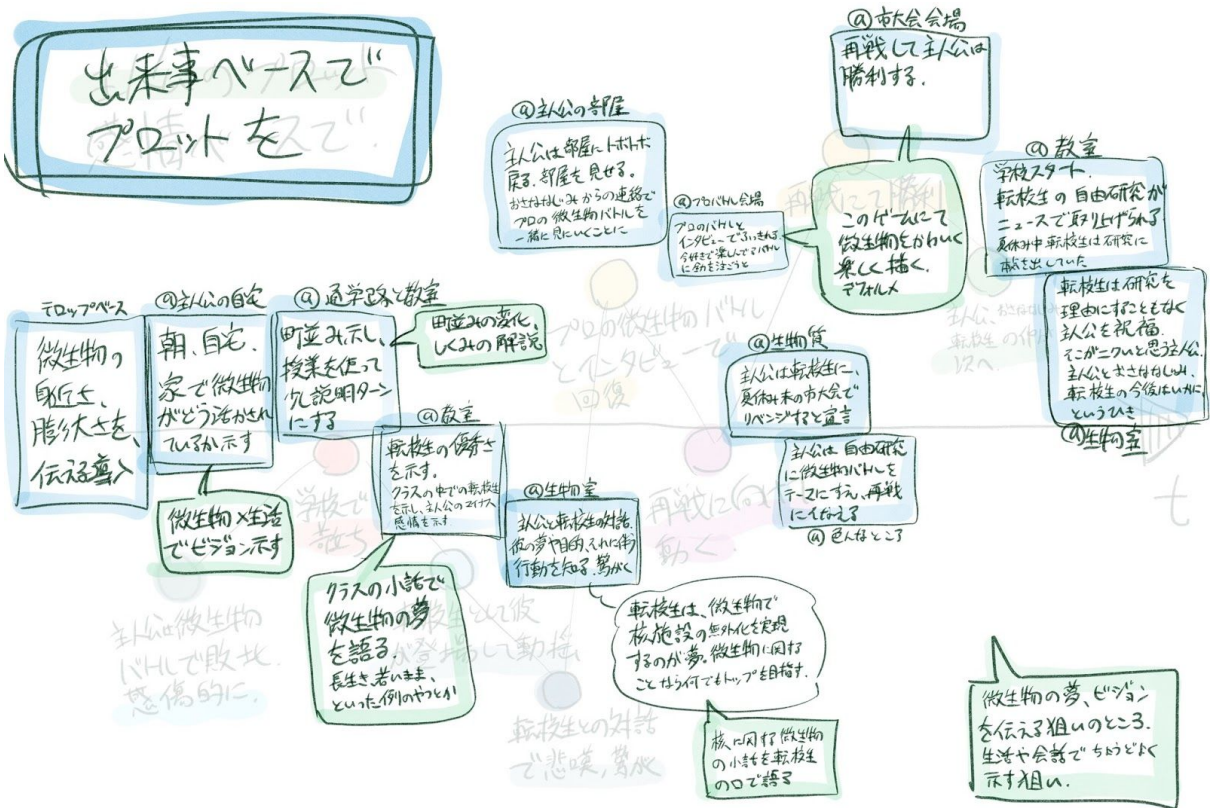 出来事ベースで
プロットを
テロップベース
微生物の
身近さ、
膨大さを、
伝える導入
@主人公の自宅
朝、自宅.
家で微生物
がどう活かされ
ているか示す
微生物×生活
でビジョン示す
@通学路と教室
町並み示し、
授業を使って
少し説明ターン
にする
町並みの変化、
しくみの解説
@教室
転校生の優秀さ
を示す.
クラスの中での転校生
を示し、主人公のマイナス
感情を示す
クラスの小話で
微生物の夢
を語る.
長生き、若いまま、
といった例のやつとか
@生物室
主人公と転校生の対話.
彼の夢や目的、それに伴う
行動を知る.驚がく
転校生は、微生物で
核施設の無外化を実現
するのが夢。微生物に関する
ことなら何でもトップを目指す.
核に関する微生物
の小話を転校生
の口で語る
@主人公の部屋
主人公は部屋にトボトボ
戻る.部屋を見せる。
おさななじみからの連絡で
プロの微生物バトルを
一緒に見にいくことに
@プロバトル会場
プロのバトルと
インタビューでふっきれる
今好きで楽しんでるバトル
に全力を注ごうと
このゲームにて
微生物をかわいく
楽しく描く.
デフォルメ
@市大会会場
再戦して主人公は
勝利する.
@生物質
主人公は転校生に、
夏休み末の市大会で
リベンジすると宣言
主人公は自由研究
に微生物バトルを
テーマにすえ、再戦
にそなえる
@色んなところ
@教室
学校スタート.
転校生の自由研究が
ニュースで取り上げられる
夏休み中転校生は研究に
精を出していた
転校生は研究を
理由にすることもなく
主人公を祝福.
そこがニクいと思う主人公.
主人公とおさななじみ、
転校生の今後はいかに、
というひき
@生物室
t
微生物の夢、ビジョン
を伝える狙いのところ.
生活や会話でちょうどよく
示す狙い.
再戦にて勝利
プロの微生物バトル
とインタビューで
回復
学校で
再戦に向け
動く.
主人公は微生物
バトルで敗北.
感傷的に.
転校生として彼
が登場して動揺
転校生との対話
で悲嘆,驚がく
主人公、おさななじみ
転校生の
次へ.